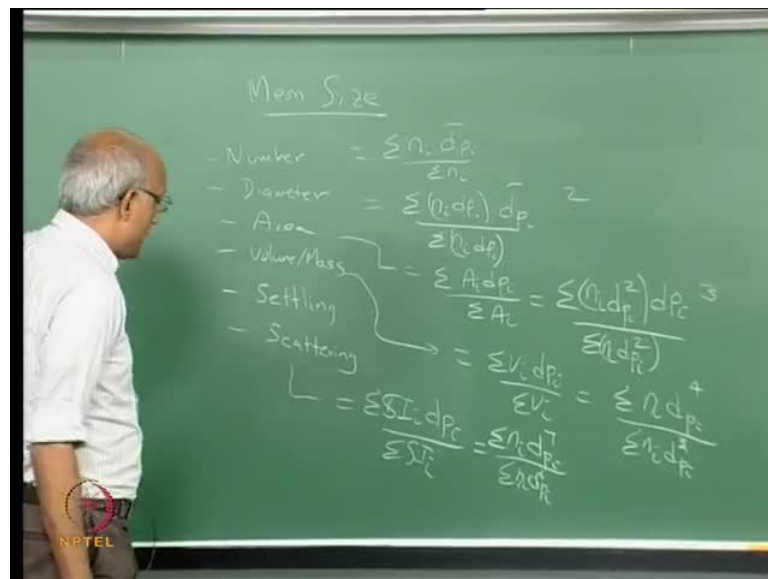 Mean Size
- Number = Σ nᵢ d̄pᵢ / Σ nᵢ
- Diameter = Σ(nᵢ dpᵢ) d̄pᵢ / Σ(nᵢ dpᵢ) 2
- Area = Σ Aᵢ dpᵢ / Σ Aᵢ = Σ(nᵢ dpᵢ²) dpᵢ / Σ(nᵢ dpᵢ²) 3
- Volume/Mass = Σ Vᵢ dpᵢ / Σ Vᵢ = Σ nᵢ dpᵢ⁴ / Σ nᵢ dpᵢ³
- Settling
- Scattering = Σ SIᵢ dpᵢ / Σ SIᵢ = Σ nᵢ dpᵢ⁷ / Σ nᵢ dpᵢ⁶
NPTEL